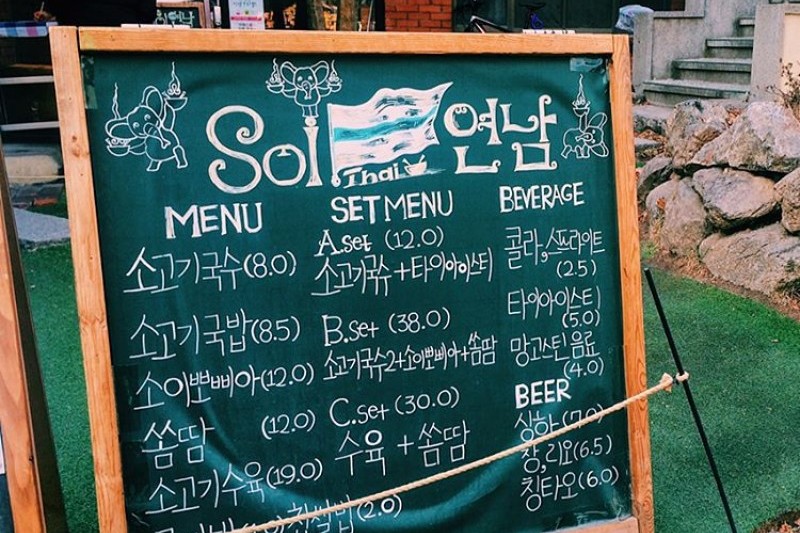 Soi 연남
Thai
MENU
소고기국수(8.0)
소고기국밥(8.5)
소이뽀삐아(12.0)
쏨땀 (12.0)
소고기수육(19.0)
찹쌀밥(2.0)
SET MENU
A.set (12.0)
소고기국수+타이아이스티
B.set (38.0)
소고기국수2+소이뽀삐아+쏨땀
C.set (30.0)
수육 + 쏨땀
BEVERAGE
콜라,스프라이트
(2.5)
타이아이스티
(5.0)
망고스틴 음료
(4.0)
BEER
싱하 (7.0)
창,리오(6.5)
칭타오(6.0)